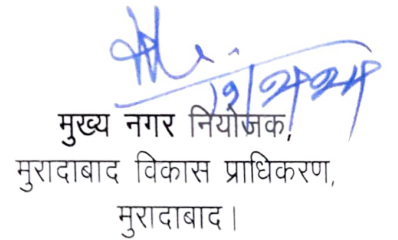 मुख्य नगर नियोजक,
मुरादाबाद विकास प्राधिकरण,
मुरादाबाद।